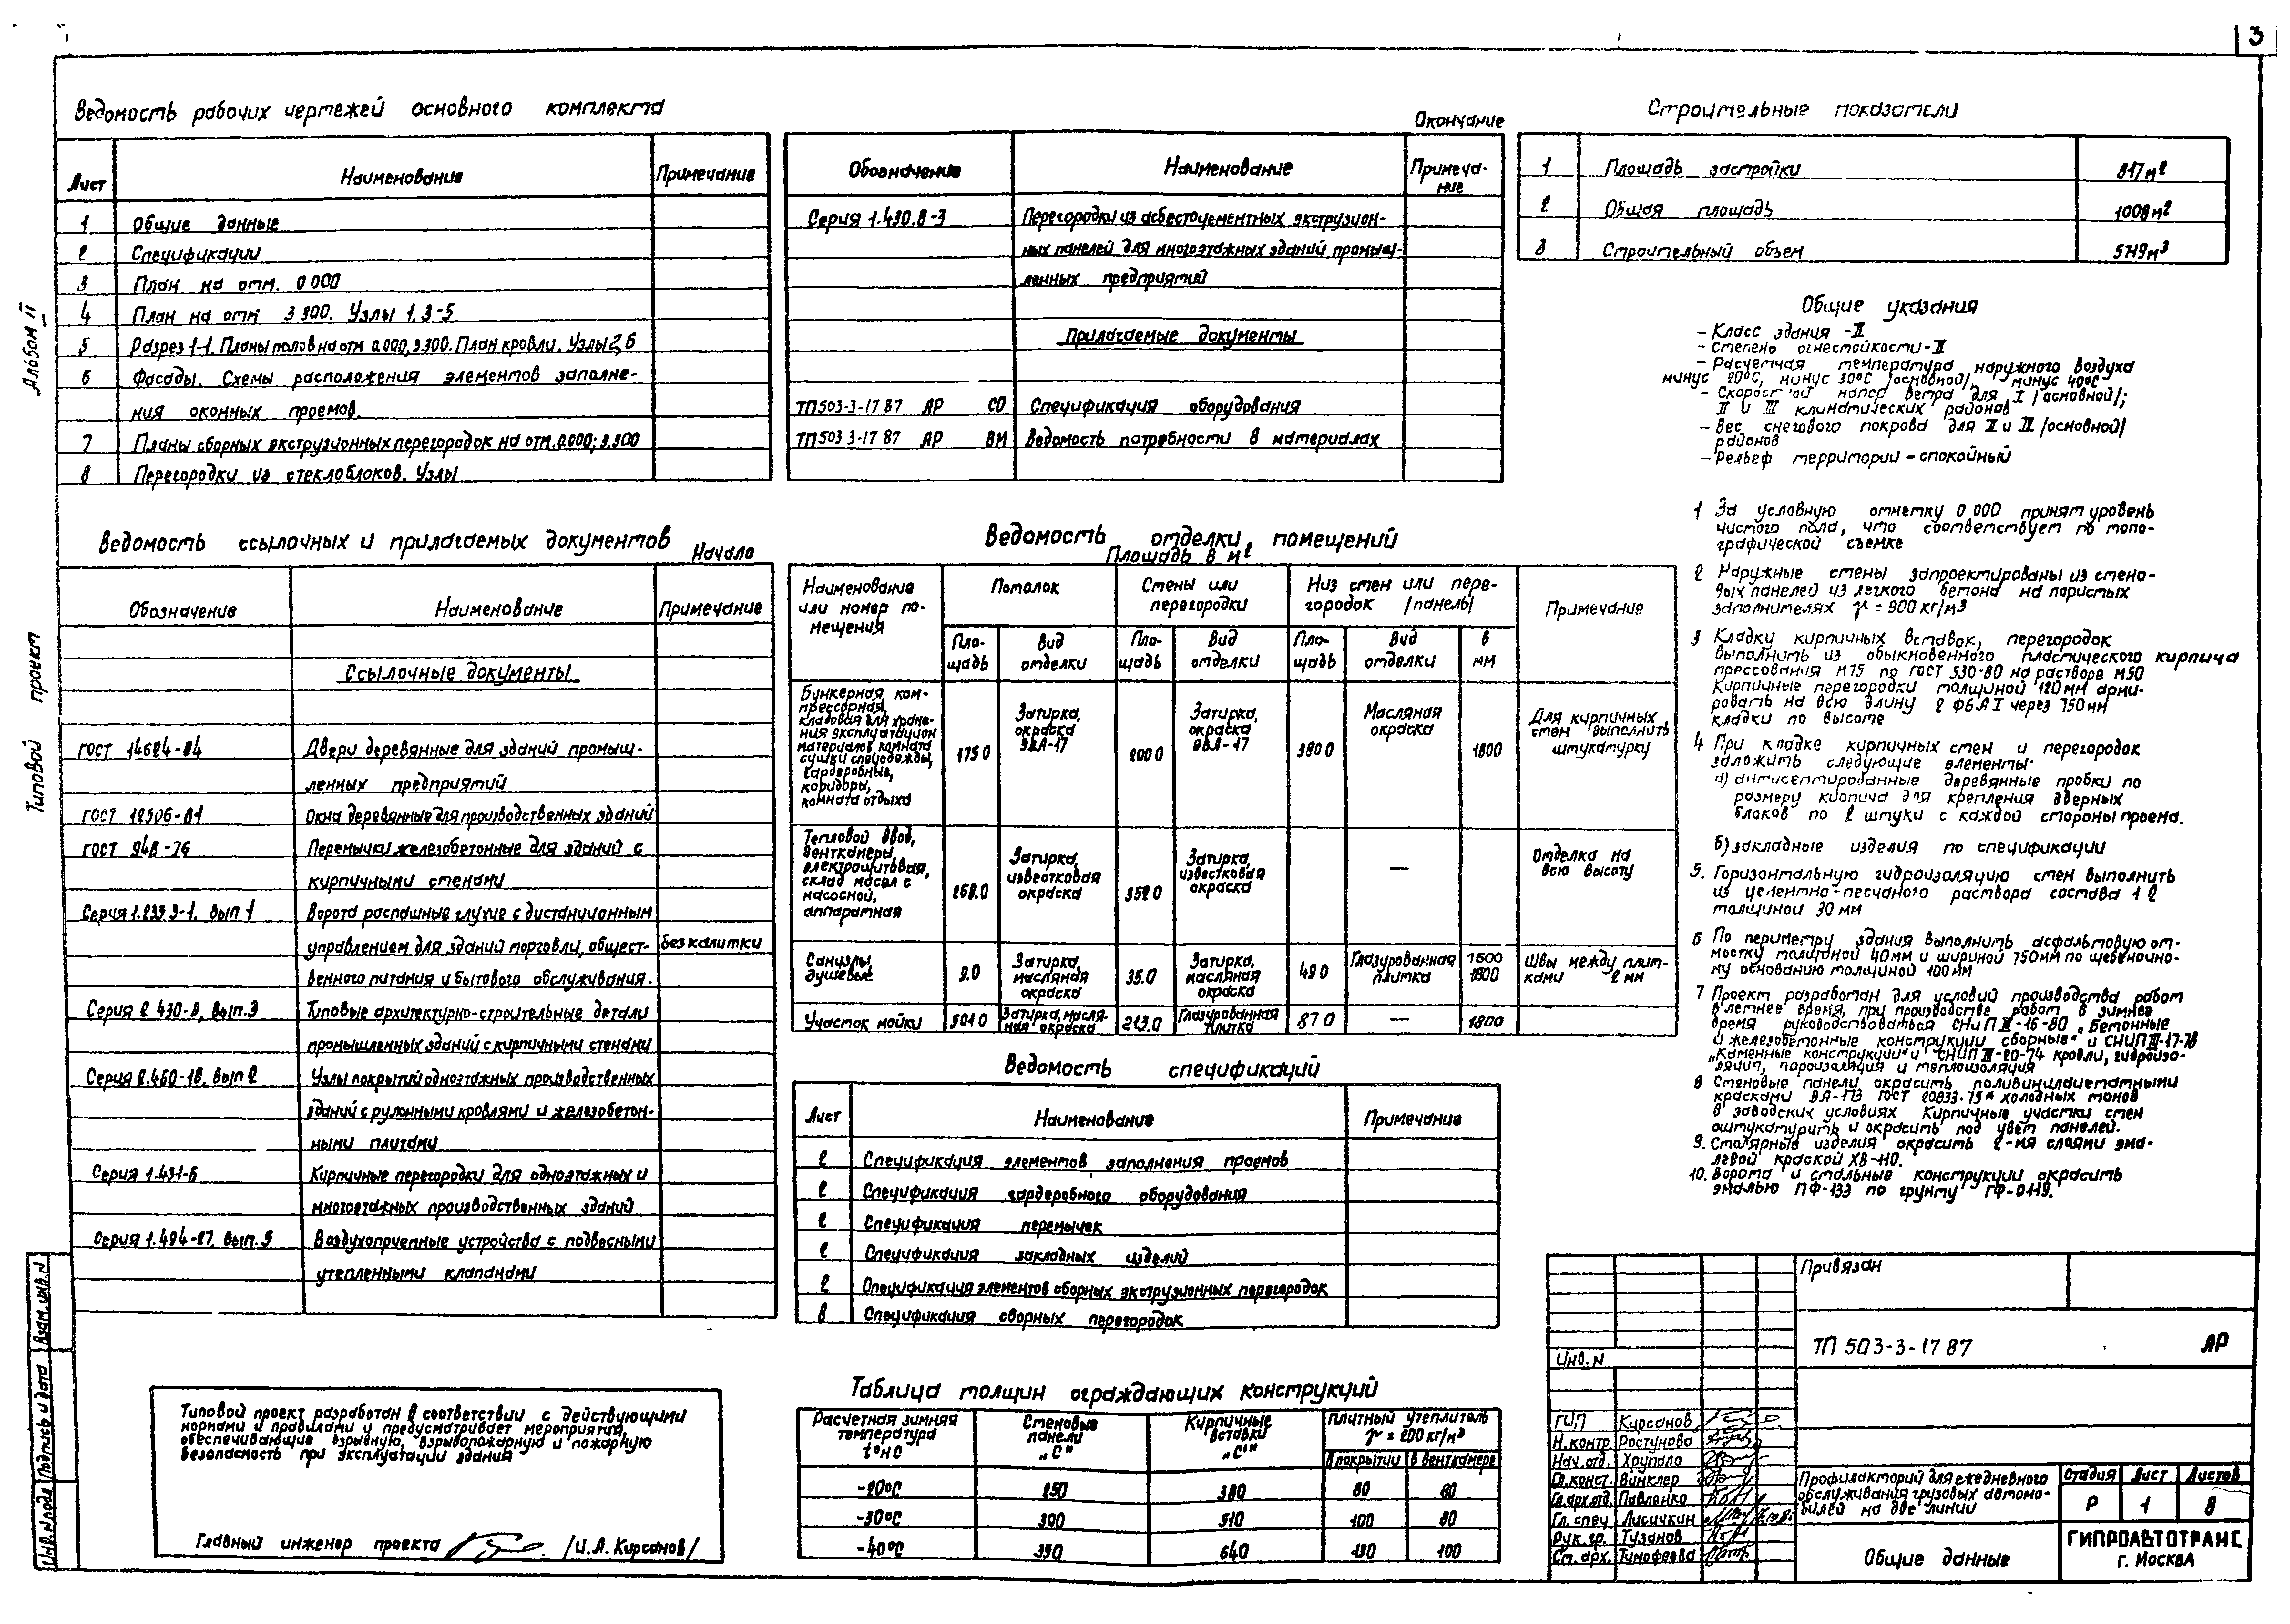 3
Ведомость рабочих чертежей основного комплекта
Лист Наименование Примечание
1 Общие данные
2 Спецификации
3 План на отм. 0 000
4 План на отм 3 300. Узлы 1, 3-5
5 Разрез 1-1. Планы полов на отм 0.000, 3.300. План кровли. Узлы 2, 6
6 Фасады. Схемы расположения элементов заполне-
ния оконных проемов.
7 Планы сборных экструзионных перегородок на отм. 0.000; 3.300
8 Перегородки из стеклоблоков. Узлы
Окончание
Обозначение Наименование Примеча-
ние
Серия 1.430.8-3 Перегородки из асбестоцементных экструзион-
ных панелей для многоэтажных зданий промыш-
ленных предприятий
Прилагаемые документы
ТП 503-3-17 87 АР СО Спецификация оборудования
ТП 503 3-17 87 АР ВМ Ведомость потребности в материалах
Строительные показатели
1 Площадь застройки 817 м2
2 Общая площадь 1008 м2
3 Строительный объем 5749 м3
Общие указания
- Класс здания - II
- Степень огнестойкости - II
- Расчетная температура наружного воздуха
минус 20°С, минус 30°С /основной/, минус 40°С
- Скоростной напор ветра для I /основной/;
II и III климатических районов
- Вес снегового покрова для II и III /основной/
районов
- Рельеф территории - спокойный
1 За условную отметку 0 000 принят уровень
чистого пола, что соответствует по топо-
графической съемке
2 Наружные стены запроектированы из стено-
вых панелей из легкого бетона на пористых
заполнителях γ = 900 кг/м3
3 Кладку кирпичных вставок, перегородок
выполнить из обыкновенного пластического кирпича
прессования М75 по ГОСТ 530-80 на растворе М50
Кирпичные перегородки толщиной 120 мм арми-
ровать на всю длину 2 Ф6 А I через 750 мм
кладки по высоте
4 При кладке кирпичных стен и перегородок
заложить следующие элементы:
а) антисептированные деревянные пробки по
размеру кирпича для крепления дверных
блоков по 2 штуки с каждой стороны проема.
б) закладные изделия по спецификации
5. Горизонтальную гидроизоляцию стен выполнить
из цементно-песчаного раствора состава 1 2
толщиной 30 мм
6 По периметру здания выполнить асфальтовую от-
мостку толщиной 40мм и шириной 750мм по щебеночно-
му основанию толщиной 100 мм
7 Проект разработан для условий производства работ
в летнее время, при производстве работ в зимнее
время руководствоваться СНиП III-16-80 „Бетонные
и железобетонные конструкции сборные" и СНИП III-17-78
„Каменные конструкции" и СНИП III-20-74 кровли, гидроизо-
ляция, пароизоляция и теплоизоляция
8 Стеновые панели окрасить поливинилацетатными
красками ВА-173 ГОСТ 20833-75* холодных тонов
в заводских условиях Кирпичные участки стен
оштукатурить и окрасить под цвет панелей.
9. Столярные изделия окрасить 2-мя слоями эма-
левой краской ХВ-110.
10. Ворота и стальные конструкции окрасить
эмалью ПФ-133 по грунту ГФ-0119.
Ведомость ссылочных и прилагаемых документов
Начало
Обозначение Наименование Примечание
Ссылочные документы
ГОСТ 14624-84 Двери деревянные для зданий промыш-
ленных предприятий
ГОСТ 12506-81 Окна деревянные для производственных зданий
ГОСТ 948-76 Перемычки железобетонные для зданий с
кирпичными стенами
Серия 1.235.9-1, вып 1 Ворота распашные глухие с дистанционным
управлением для зданий торговли, общест- без калитки
венного питания и бытового обслуживания.
Серия 2 430-8, вып.3 Типовые архитектурно-строительные детали
промышленных зданий с кирпичными стенами
Серия 2.460-18, вып 2 Узлы покрытий одноэтажных производственных
зданий с рулонными кровлями и железобетон-
ными плитами
Серия 1.431-6 Кирпичные перегородки для одноэтажных и
многоэтажных производственных зданий
Серия 1.494-27, вып. 5 Воздухоприемные устройства с подвесными
утепленными клапанами
Ведомость отделки помещений
Площадь в м2
Наименование
или номер по-
мещения
Потолок
Стены или
перегородки
Низ стен или пере-
городок /панель/
Примечание
Пло-
щадь
Вид
отделки
Пло-
щадь
Вид
отделки
Пло-
щадь
Вид
отделки
в
мм
Бункерная, ком-
прессорная,
кладовая для хране-
ния эксплуатацион
материалов, комната
сушки спецодежды,
гардеробные,
коридоры,
комната отдыха
175 0
Затирка,
окраска
ЭВА-17
200 0
Затирка,
окраска
ЭВА-17
380 0
Масляная
окраска
1800
Для кирпичных
стен выполнить
штукатурку
Тепловой ввод,
венткамеры,
электрощитовая,
склад масел с
насосной,
аппаратная
268.0
Затирка,
известковая
окраска
352 0
Затирка,
известковая
окраска
—
Отделка на
всю высоту
Санузлы,
душевые
9.0
Затирка,
масляная
окраска
35.0
Затирка,
масляная
окраска
49 0
Глазурованная
плитка
1500
1800
Швы между плит-
ками 2 мм
Участок мойки
501 0
Затирка, масля-
ная окраска
213.0
Глазурованная
плитка
87 0
—
1800
Ведомость спецификаций
Лист Наименование Примечание
2 Спецификация элементов заполнения проемов
2 Спецификация гардеробного оборудования
2 Спецификация перемычек
2 Спецификация закладных изделий
2 Спецификация элементов сборных экструзионных перегородок
8 Спецификация сборных перегородок
Таблица толщин ограждающих конструкций
Расчетная зимняя
температура
t°н С
Стеновые
панели
„С"
Кирпичные
вставки
„С'"
Плитный утеплитель
γ = 200 кг/м3
В покрытии В венткамере
-20°С 250 380 80 80
-30°С 300 510 100 80
-40°С 350 640 130 100
Типовой проект разработан в соответствии с действующими
нормами и правилами и предусматривает мероприятия,
обеспечивающие взрывную, взрывопожарную и пожарную
безопасность при эксплуатации здания
Главный инженер проекта /И.А. Кирсанов/
Альбом II
Типовой проект
Взам. инв. N
Подпись и дата
Инв. N подл
Привязан
Инв. N
ТП 503-3-17 87 АР
ГИП Кирсанов
Н. контр. Ростунова
Нач. отд. Хрупало
Гл. конст. Винклер
Гл. арх. отд. Павленко
Гл. спец Лисичкин
Рук. гр. Тузанов
Ст. арх. Тимофеева
Профилакторий для ежедневного
обслуживания грузовых автомо-
билей на две линии
Стадия Лист Листов
Р 1 8
Общие данные
ГИПРОАВТОТРАНС
г. Москва